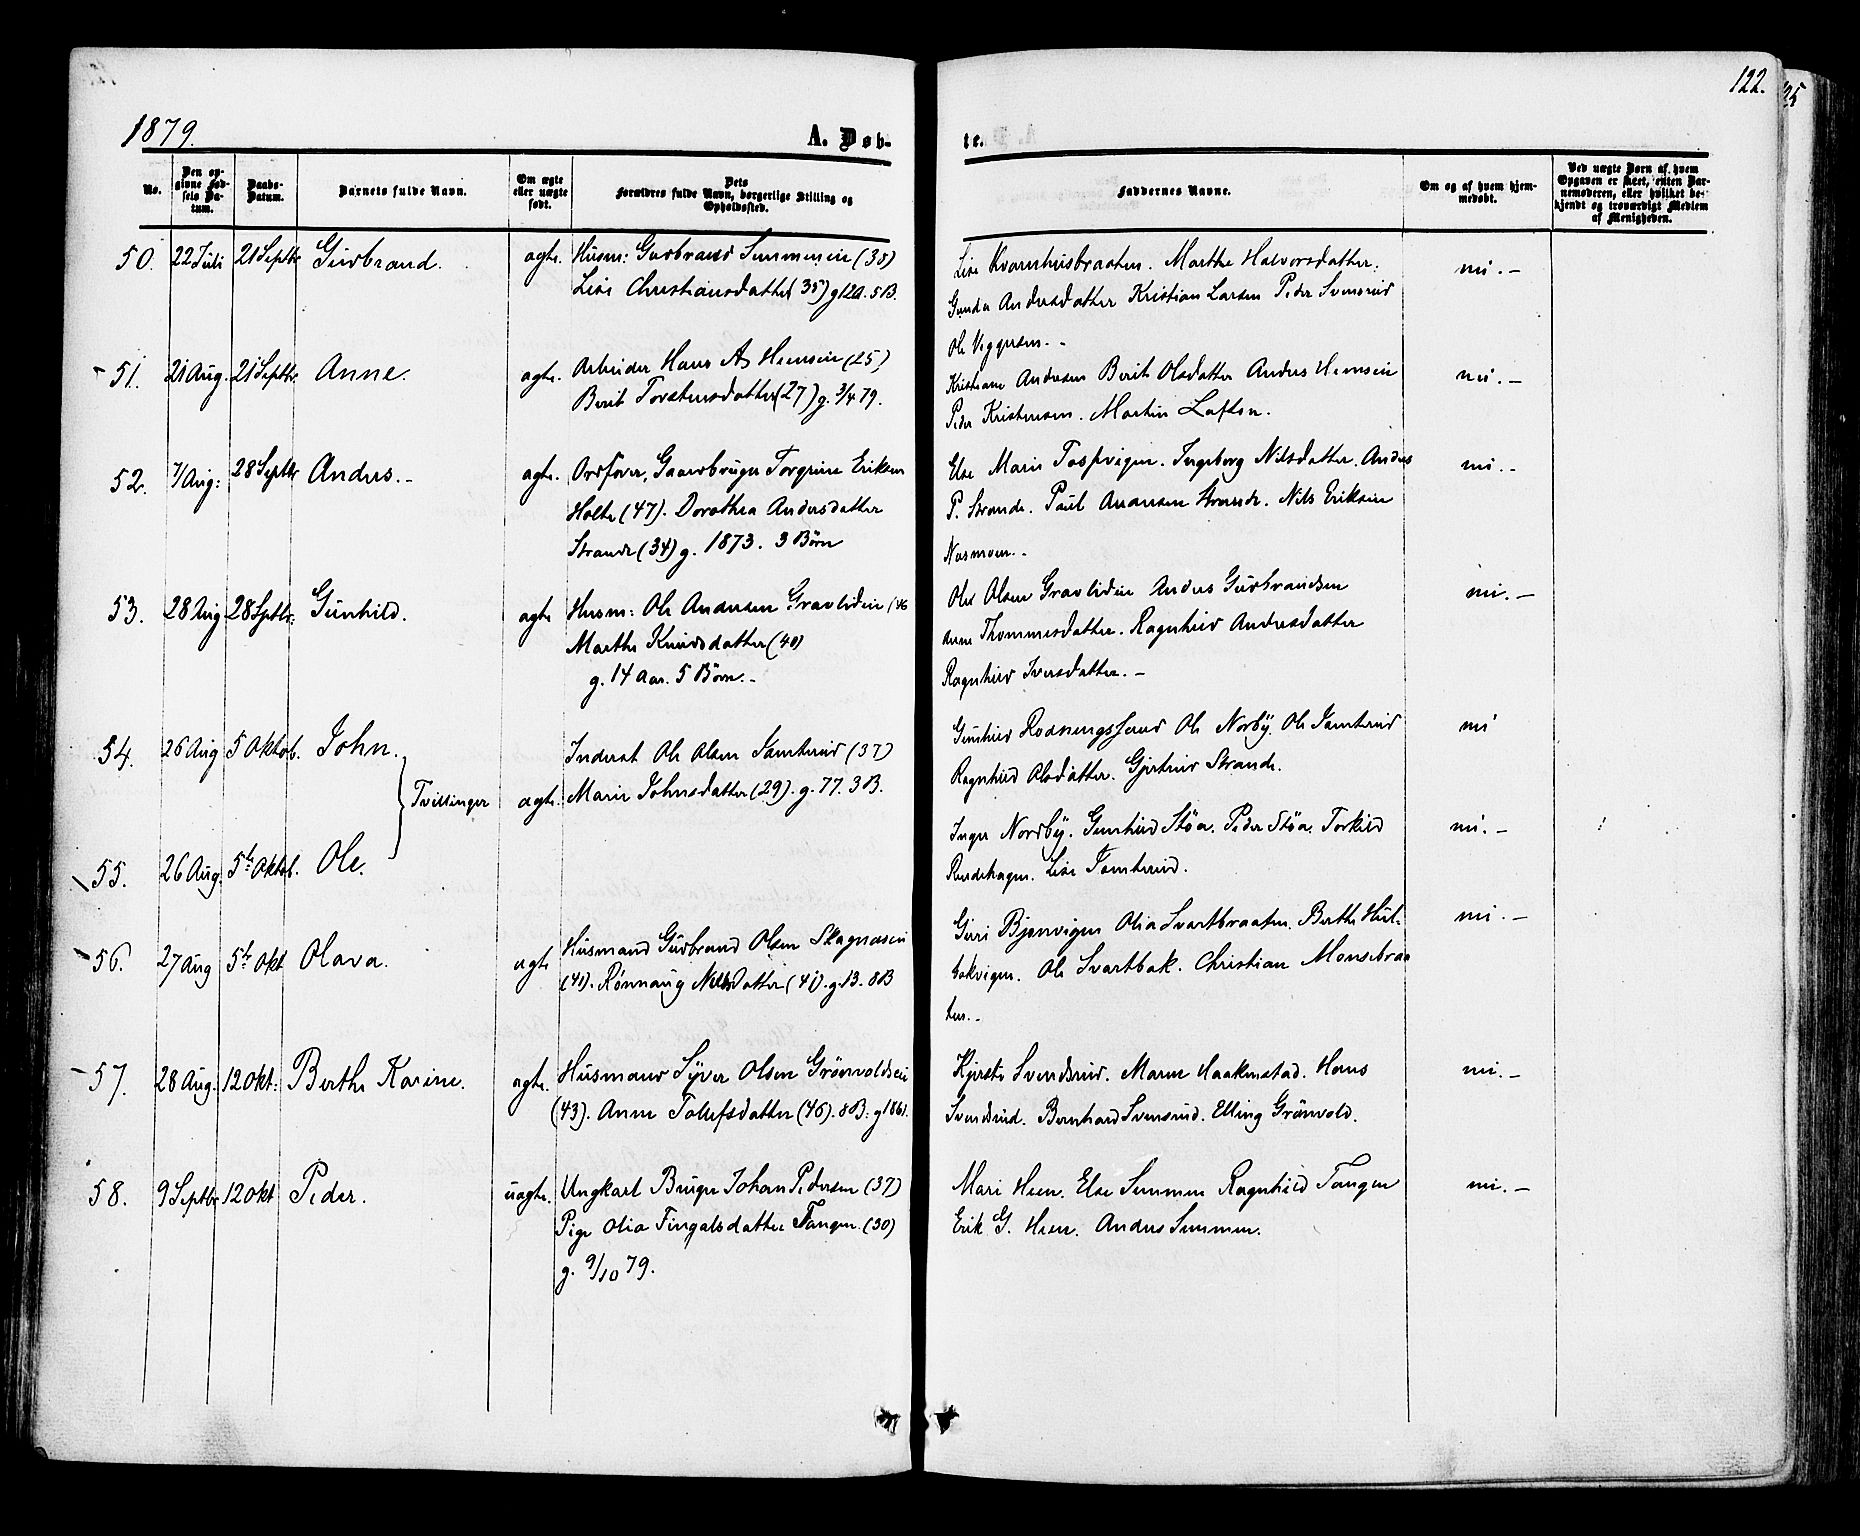 122.
125
1879.
A. Døb-
te.
No.
Den opgivne Fødsels Datum.
Daabs-Datum.
Barnets fulde Navn.
Om ægte eller uægte født.
Dets Forældres fulde Navn, borgerlige Stilling og Opholdssted.
Faddernes Navne.
Om og af hvem hjemmedøbt.
Ved uægte Børn af hvem Opgaven er skeet, enten Barnemoderen, eller hvilket bekjendt og troværdigt Medlem af Menigheden.
50. 22 Juli 21 Septbr Gudbrand. ægte. Husm: Gudbrand Simmensein (38)
Lise Christiansdatter (35) g 12 a. 5 B.
Lise Kvernhusbraaten. Marthe Halvorsdatter.
Gunda Andersdatter Kristian Larsen Peder Svensrud
Ole Viggesen. -
ni. -
51. 21 Aug. 21 Septbr Anne. ægte. Arbeider Hans A. Hensein (25)
Berit Torstensdatter (27) g. 3/4 79.
Kristiane Andersen Berit Olsdatter Anders Hensein
Peder Kristensen. Martin Lafton.
ni. -
52. 7/Aug: 28 Septbr Anders. - ægte. Ordfører, Gaardbruger Torgrim Eriksen
Holte (47). Dorothea Andersdatter
Strande (34) g. 1873. 3 Børn
Else Marie Tospvigen. Ingeborg Nilsdatter. Anders
P. Strande. Paul Anansen Strande. Nils Eriksein
Næsmoen. -
ni. -
53. 28 Aug 28 Septbr. Gunhild. ægte Husm: Ole Andersen Gravlidein (46
Marthe Knudsdatter (40)
g. 14 Aar. 5 Børn. -
Ole Olsen Gravlidein Anders Gudbrandsen
Anne Thommesdatter. Ragnhild Andersdatter
Ragnhild Iversdatter. -
ni. -
54. 26 Aug 5 Oktob. John. Inderst Ole Olsen Tamterud (37)
Tvillinger ægte. Marie Johnsdatter (29). g. 77. 3 B.
Gunhild Ole Nordby. Ole Tamterud
Ragnhild Olsdatter. Gjertrud Strande.
ni
55. 26 Aug. 5te Oktob. Ole.
Inger Nordby. Gunhild Støa. Peder Støa. Torkild
Rudshagen. Lise Tomterud.
ni. -
56. 27 Aug 5te Okt Olava. ægte Husmand Gudbrand Olsen Skagnæsein
(41). Rønnaug Nilsdatter (41). g. 13. 8 B
Guri Bjønvigen Olia Svartbraaten. Berthe Hul-
bakvigen. Ole Svartbak. Christian Monsebraa
ten. -
ni. -
57. 28 Aug. 12 Okt: Berthe Karine. ægte. Husmand Syver Olsen Grønvoldsein
(43). Anne Tollefsdatter (46). 8 B. g 1861.
Kjersti Svendsrud. Maren Haakenstad. Hans
Svendsrud. Bernhard Svensrud. Elling Grønvold.
ni. -
58. 9 Septbr 12 Okt Peder. uægte. Ungkarl Bruger Johan Pedersen (37)
Pige Olia Fingalsdatter Tangen (30)
g. 9/10 79.
Mari Heen. Else Simmen Ragnhild Tangen
Erik G. Heen. Anders Simmen.
ni. -